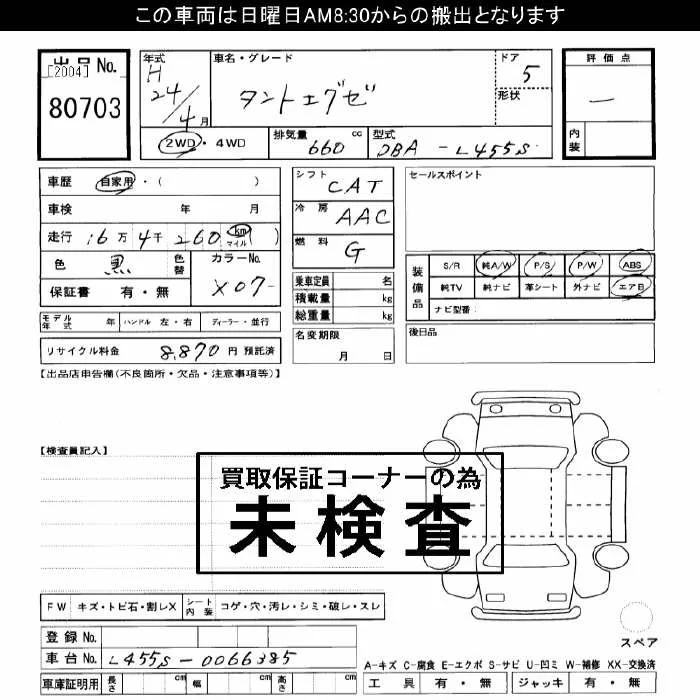 この車両は日曜日AM8:30からの搬出となります
出品 No.
[2004]
80703
年式
H
24/4月
車名・グレード
タントエグゼ
ドア
5
形状
評価点
―
内装
2WD・4WD
排気量
660 cc
型式
DBA-L455S
車歴 自家用・( )
車検 年 月
走行 16万4千260 km マイル ( )
色 黒 色替 カラーNo. X07-
保証書 有・無
モデル年式 年 ハンドル 左・右 ディーラー・並行
リサイクル料金 8,870 円 預託済
シフト CAT
冷房 AAC
燃料 G
乗車定員 名
積載量 kg
総重量 kg
名変期限
月 日
セールスポイント
装備品
S/R 純A/W P/S P/W ABS
純TV 純ナビ 革シート 外ナビ エアB
ナビ型番:
後日品
【出品店申告欄(不良箇所・欠品・注意事項等)】
【検査員記入】
買取保証コーナーの為
未検査
FW キズ・トビ石・割レX シート内装 コゲ・穴・汚レ・シミ・破レ・スレ
登録 No.
車台 No. L455S-0066385
車庫証明用 長さ cm 幅 cm 高さ cm
スペア
A-キズ C-腐食 E-エクボ S-サビ U-凹ミ W-補修 XX-交換済
工具 有・無 ジャッキ 有・無